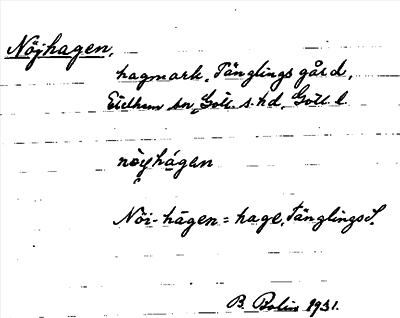 Nöjhagen,
hagmark, Tänglings gård,
Etelhem sn, Gotl. s. hd, Gotl. l.
nöyhágen
Nöi-hāgen = hage, Tänglings S.
B. Bolin 1931.